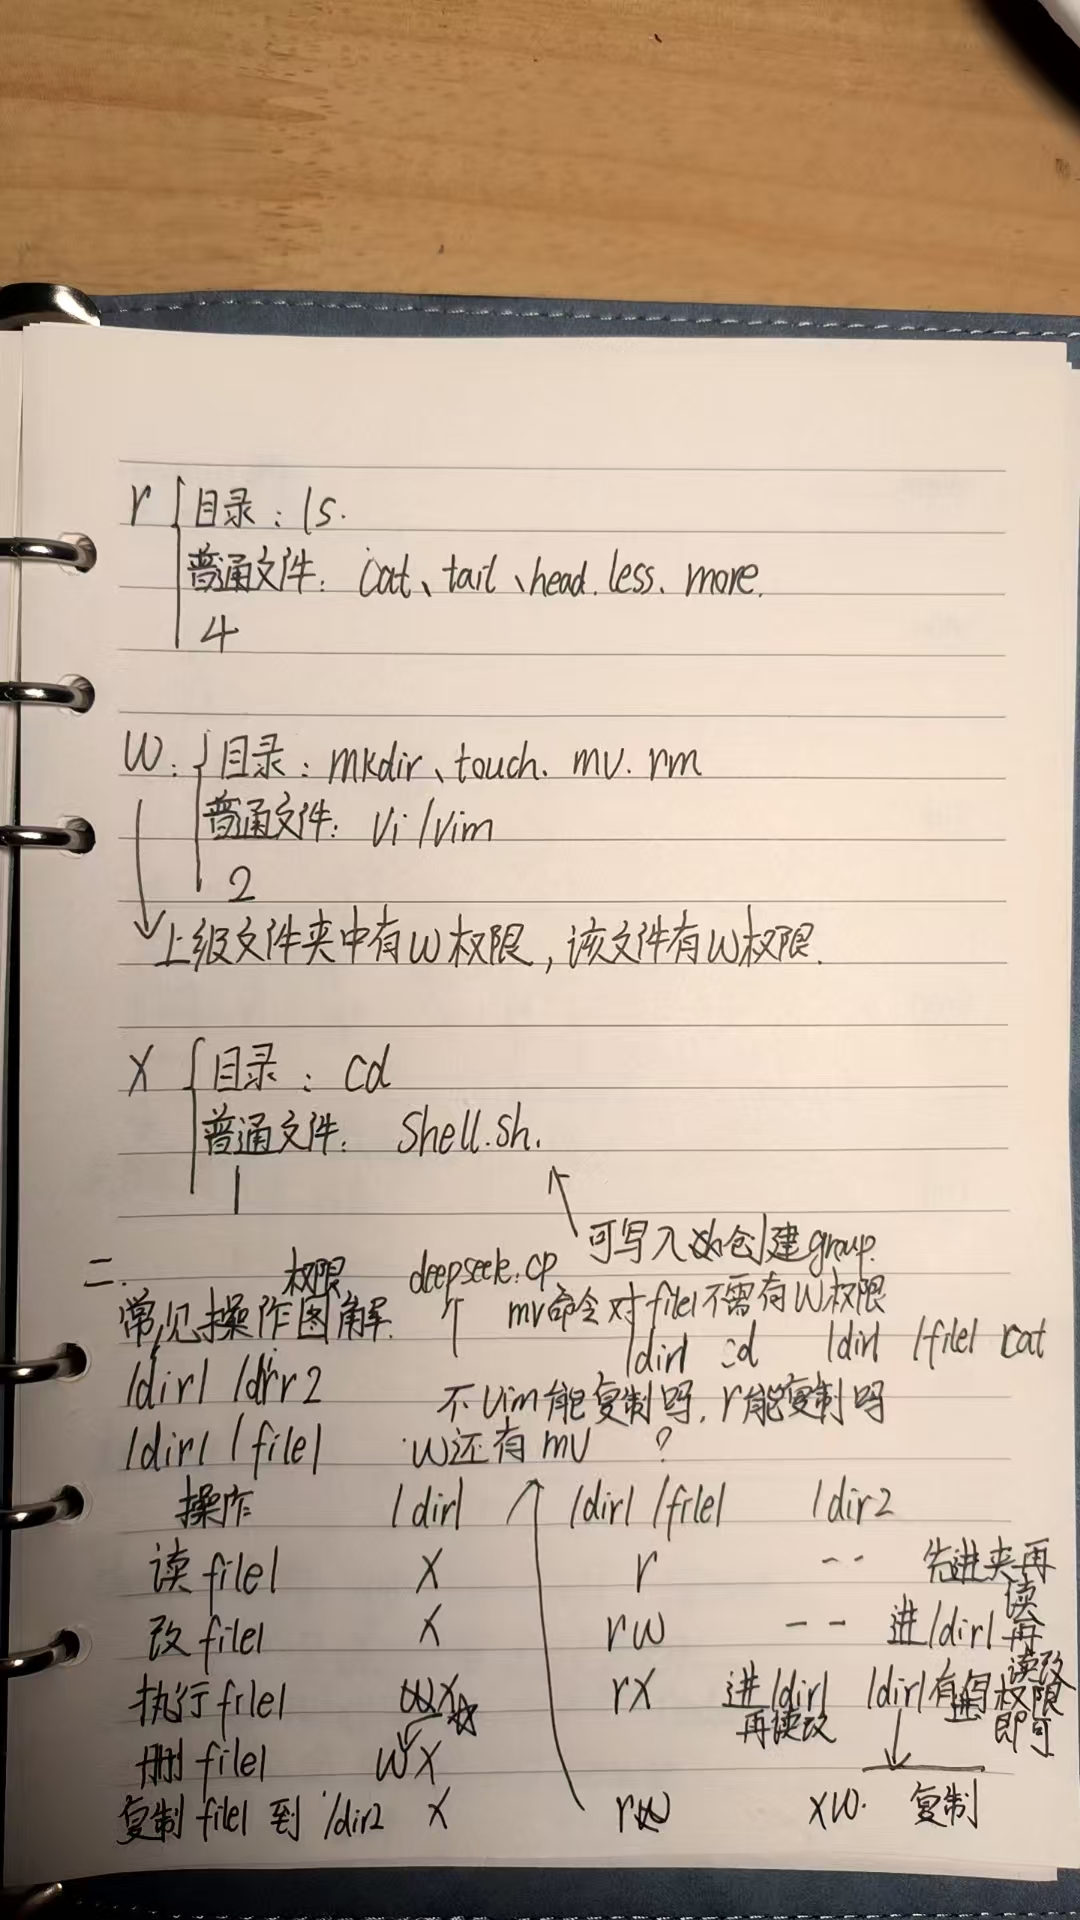 r 目录：ls.
普通文件：cat、tail、head.less、more.
4
W： 目录：mkdir、touch. mv. rm
普通文件：Vi/Vim
2
上级文件夹中有W权限，该文件有W权限.
X 目录：cd
普通文件：Shell.sh.
1
可写入 创建group.
二. 权限 deepseek:cp
常见操作图解. mv命令对file1不需有W权限
/dir1 cd /dir1 /file1 cat
/dir1 /dir2 不vim能复制吗，r能复制吗
/dir1 /file1 W还有mv ?
操作 /dir1 /dir1 /file1 /dir2
读file1 X r -- 先进夹再读
改file1 X rw -- 进/dir1再读改
执行file1 X rX 进/dir1再读改 /dir1有 权限即可
删file1 WX
复制file1到/dir2 X r XW. 复制